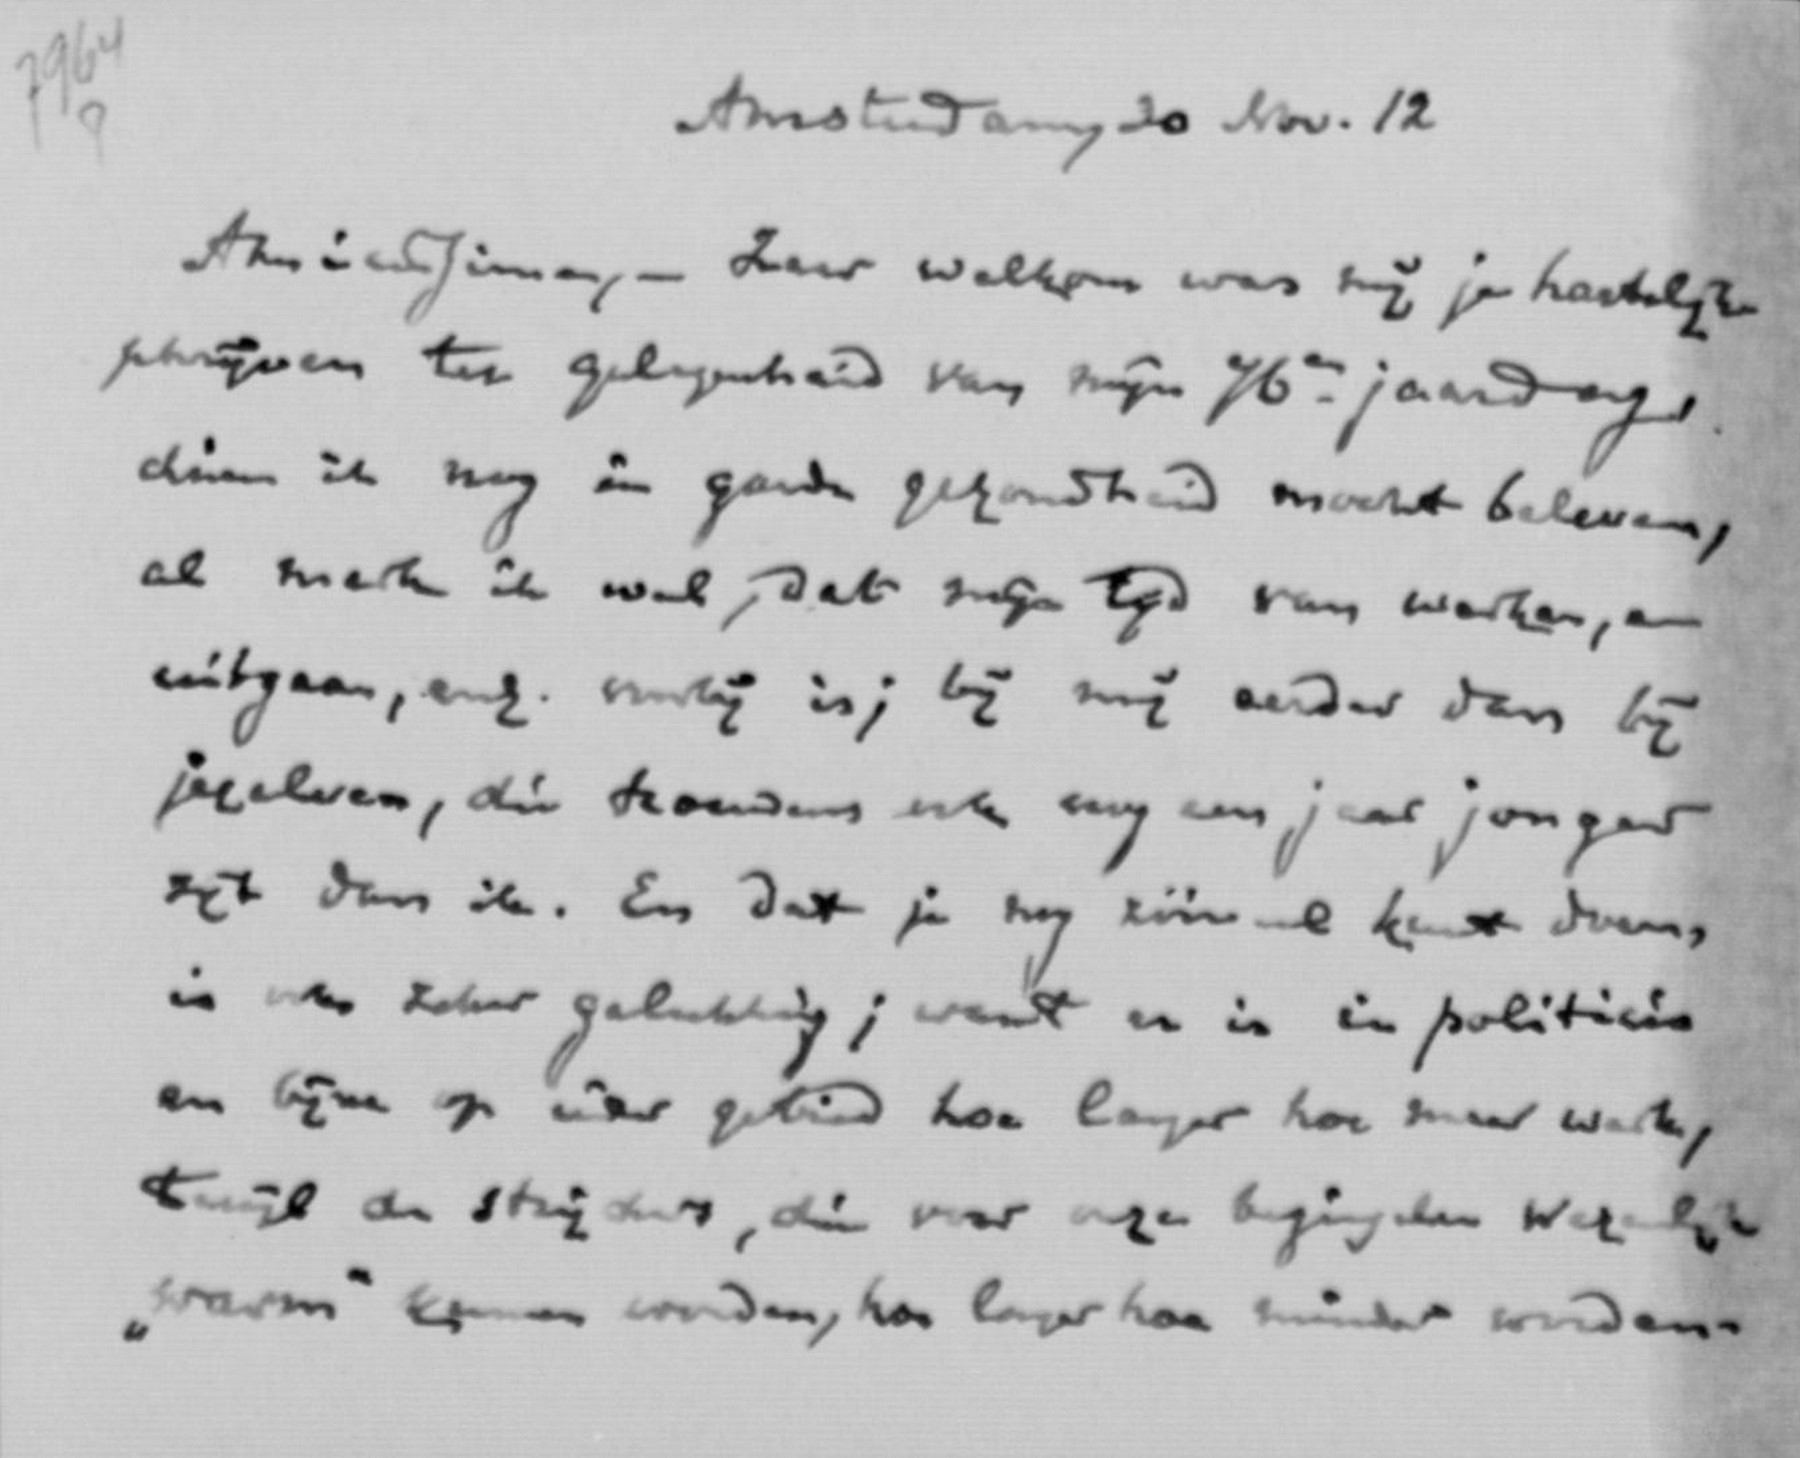 7964
Amsterdam, 20 Nov. 12
Amice, – Zeer welkom was mij je hartelijk
schrijven ter gelegenheid van mijn 76en jaardag,
dien ik nog in goede gezondheid mocht beleven,
al merk ik wel, dat mijn tijd van werken, en
uitgaan, enz. voorbij is; bij mij eerder dan bij
jezelven, die trouwens ook nog een jaar jonger
zijt dan ik. En dat je nog zóóveel kunt doen,
is ook zeker gelukkig; want er is in politicis
en bijna op ieder gebied hoe langer hoe meer werk,
terwijl de strijders, die voor onze beginselen wezenlijk
„warm” kunnen worden, hoe langer hoe minder worden.